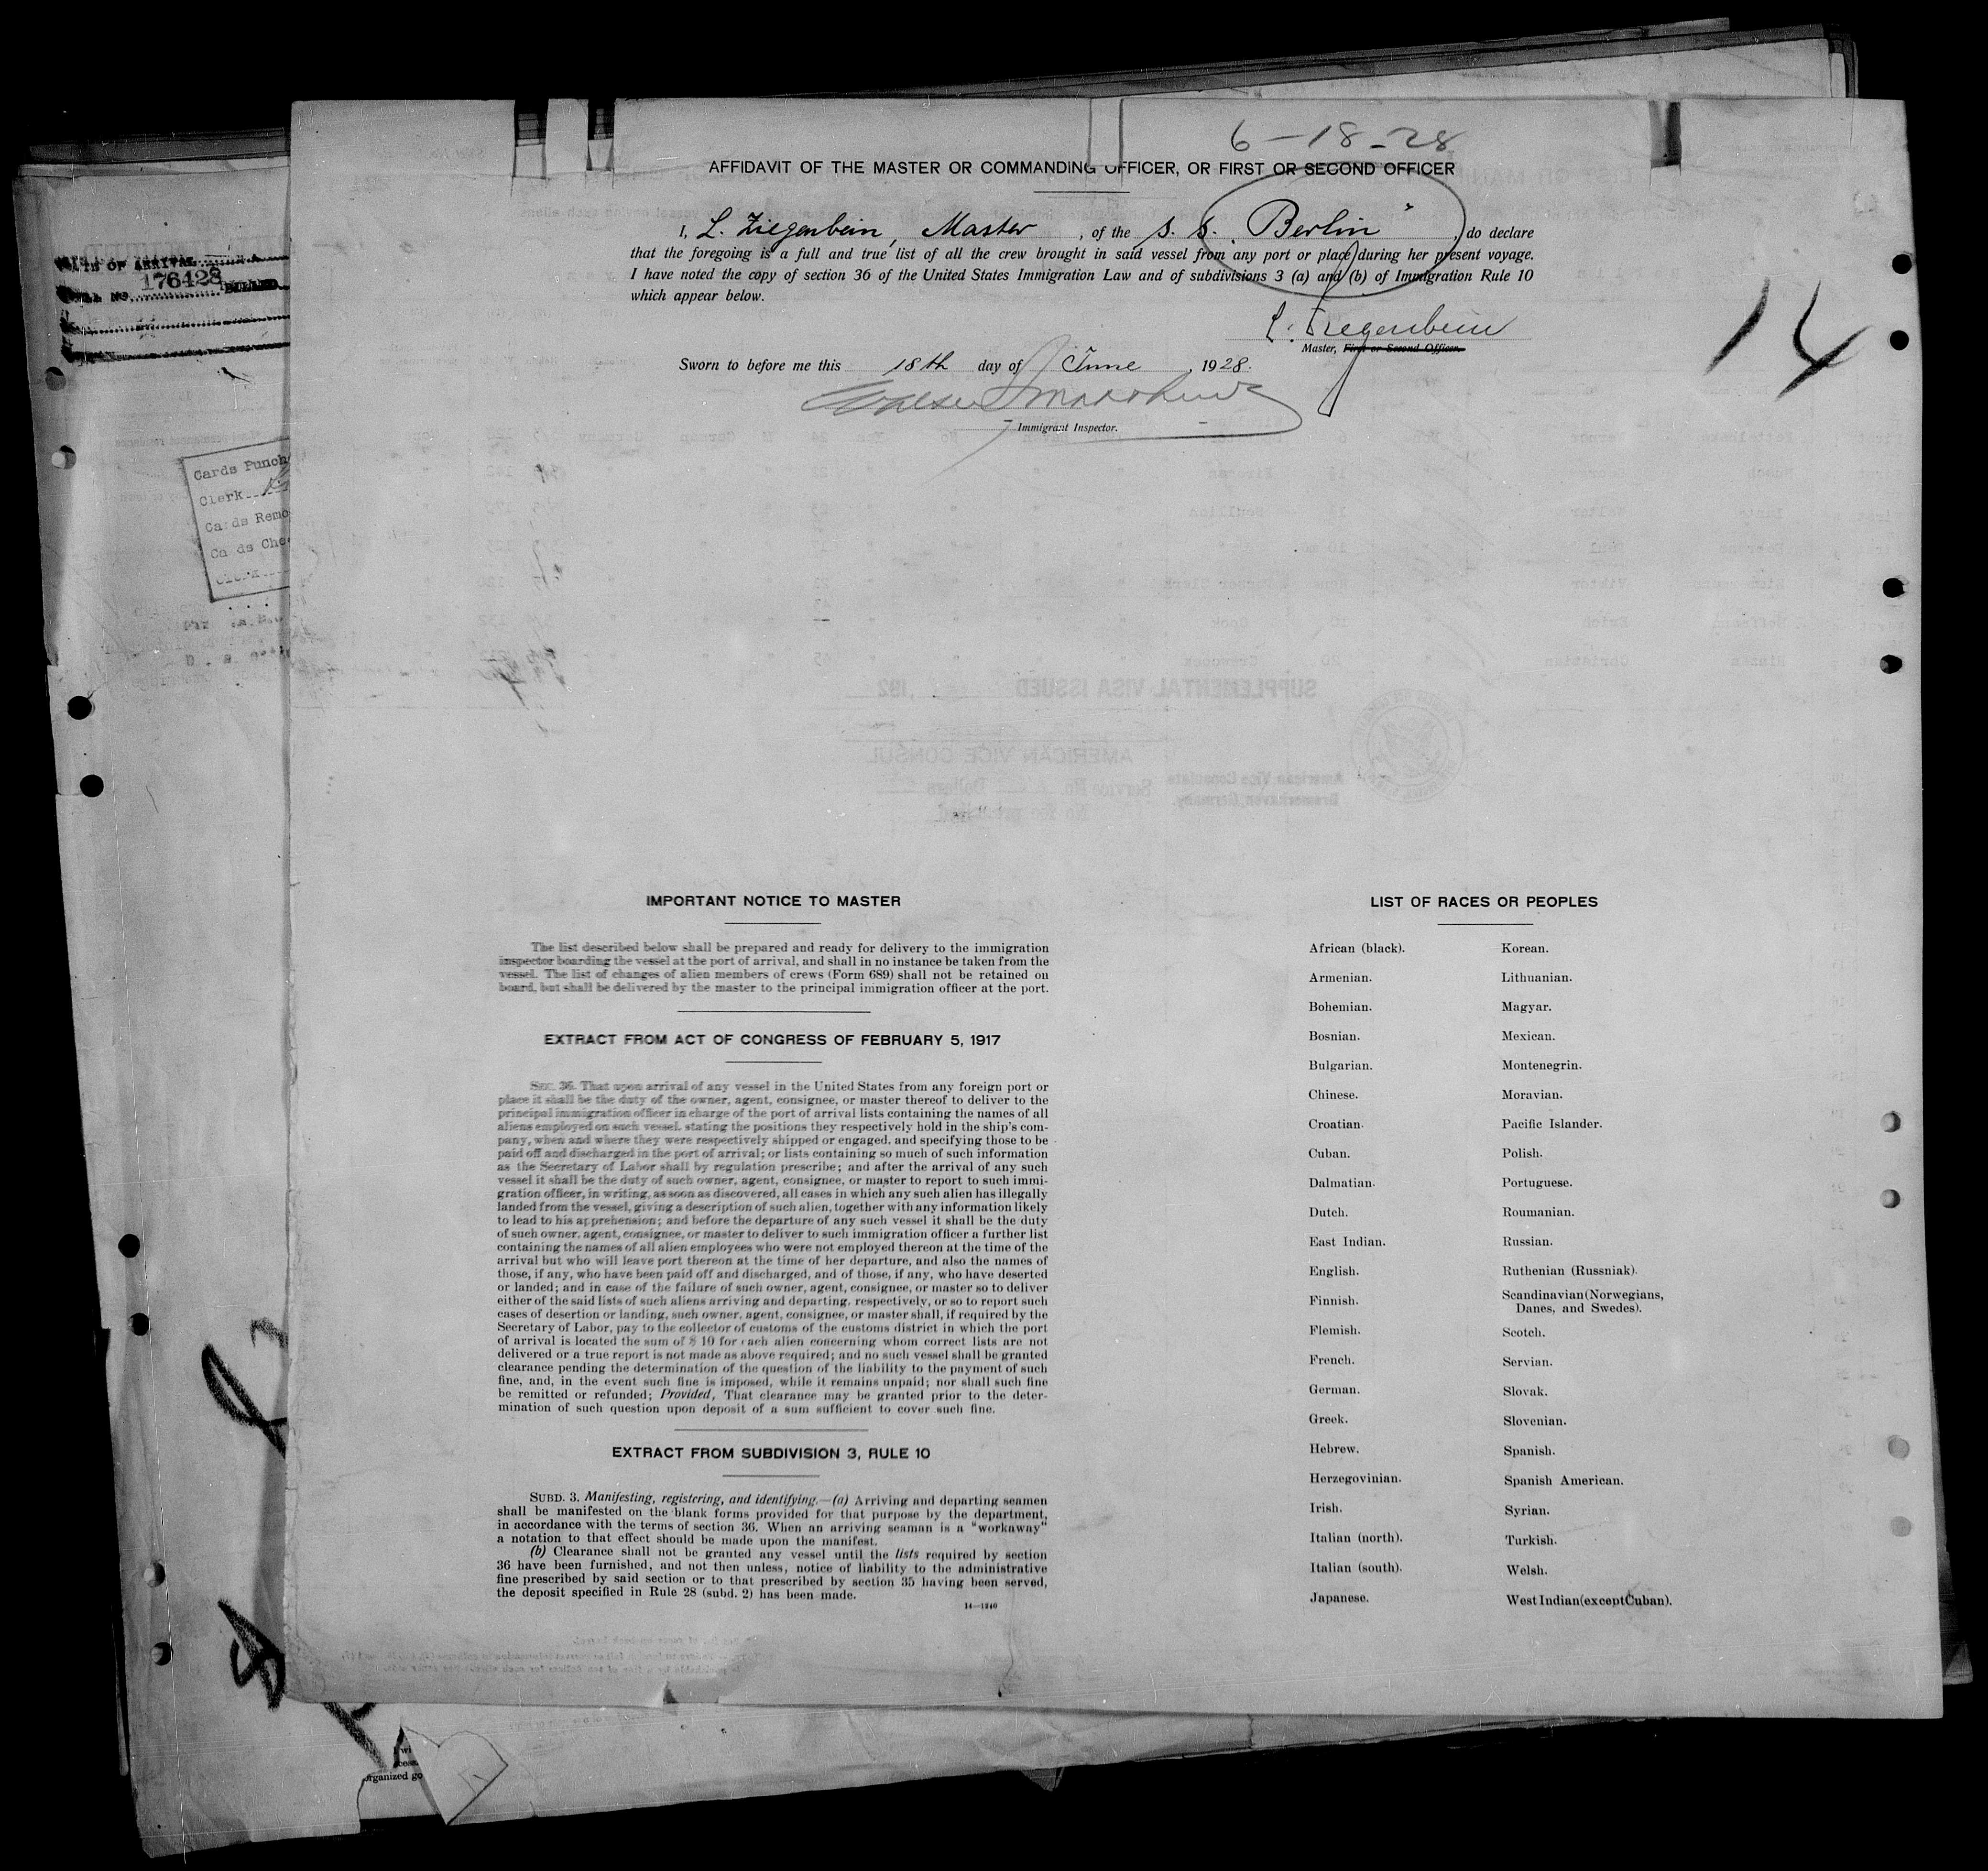 6-18-28
AFFIDAVIT OF THE MASTER OR COMMANDING OFFICER, OR FIRST OR SECOND OFFICER
I, L. Ziegenbein, Master, of the S. S. "Berlin", do declare
that the foregoing is a full and true list of all the crew brought in said vessel from any port or place during her present voyage.
I have noted the copy of section 36 of the United States Immigration Law and of subdivisions 3 (a) and (b) of Immigration Rule 10
which appear below.
L. Ziegenbein
Master, First or Second Officer.
Sworn to before me this 18th day of June, 1928.
Immigrant Inspector.
14
OF ARRIVAL
176428
Cards Punch
Clerk
Cards Remo
Cards Che
Clerk
SUPPLEMENTAL VISA ISSUED ,192
AMERICAN VICE CONSUL
American Vice Consulate
Bremerhaven, Germany.
Service No. Dollars
IMPORTANT NOTICE TO MASTER
The list described below shall be prepared and ready for delivery to the immigration
inspector boarding the vessel at the port of arrival, and shall in no instance be taken from the
vessel. The list of changes of alien members of crews (Form 689) shall not be retained on
board, but shall be delivered by the master to the principal immigration officer at the port.
EXTRACT FROM ACT OF CONGRESS OF FEBRUARY 5, 1917
SEC. 36. That upon arrival of any vessel in the United States from any foreign port or
place it shall be the duty of the owner, agent, consignee, or master thereof to deliver to the
principal immigration officer in charge of the port of arrival lists containing the names of all
aliens employed on such vessel, stating the positions they respectively hold in the ship's com-
pany, when and where they were respectively shipped or engaged, and specifying those to be
paid off and discharged in the port of arrival; or lists containing so much of such information
as the Secretary of Labor shall by regulation prescribe; and after the arrival of any such
vessel it shall be the duty of such owner, agent, consignee, or master to report to such immi-
gration officer, in writing, as soon as discovered, all cases in which any such alien has illegally
landed from the vessel, giving a description of such alien, together with any information likely
to lead to his apprehension; and before the departure of any such vessel it shall be the duty
of such owner, agent, consignee, or master to deliver to such immigration officer a further list
containing the names of all alien employees who were not employed thereon at the time of the
arrival but who will leave port thereon at the time of her departure, and also the names of
those, if any, who have been paid off and discharged, and of those, if any, who have deserted
or landed; and in case of the failure of such owner, agent, consignee, or master so to deliver
either of the said lists of such aliens arriving and departing, respectively, or so to report such
cases of desertion or landing, such owner, agent, consignee, or master shall, if required by the
Secretary of Labor, pay to the collector of customs of the customs district in which the port
of arrival is located the sum of $ 10 for each alien concerning whom correct lists are not
delivered or a true report is not made as above required; and no such vessel shall be granted
clearance pending the determination of the question of the liability to the payment of such
fine, and, in the event such fine is imposed, while it remains unpaid; nor shall such fine
be remitted or refunded; Provided, That clearance may be granted prior to the deter-
mination of such question upon deposit of a sum sufficient to cover such fine.
EXTRACT FROM SUBDIVISION 3, RULE 10
SUBD. 3. Manifesting, registering, and identifying.—(a) Arriving and departing seamen
shall be manifested on the blank forms provided for that purpose by the department,
in accordance with the terms of section 36. When an arriving seaman is a "workaway"
a notation to that effect should be made upon the manifest.
(b) Clearance shall not be granted any vessel until the lists required by section
36 have been furnished, and not then unless, notice of liability to the administrative
fine prescribed by said section or to that prescribed by section 35 having been served,
the deposit specified in Rule 28 (subd. 2) has been made.
14—1240
LIST OF RACES OR PEOPLES
African (black). Korean.
Armenian. Lithuanian.
Bohemian. Magyar.
Bosnian. Mexican.
Bulgarian. Montenegrin.
Chinese. Moravian.
Croatian. Pacific Islander.
Cuban. Polish.
Dalmatian. Portuguese.
Dutch. Roumanian.
East Indian. Russian.
English. Ruthenian (Russniak).
Finnish. Scandinavian(Norwegians,
Danes, and Swedes).
Flemish. Scotch.
French. Servian.
German. Slovak.
Greek. Slovenian.
Hebrew. Spanish.
Herzegovinian. Spanish American.
Irish. Syrian.
Italian (north). Turkish.
Italian (south). Welsh.
Japanese. West Indian(except Cuban).
organized go